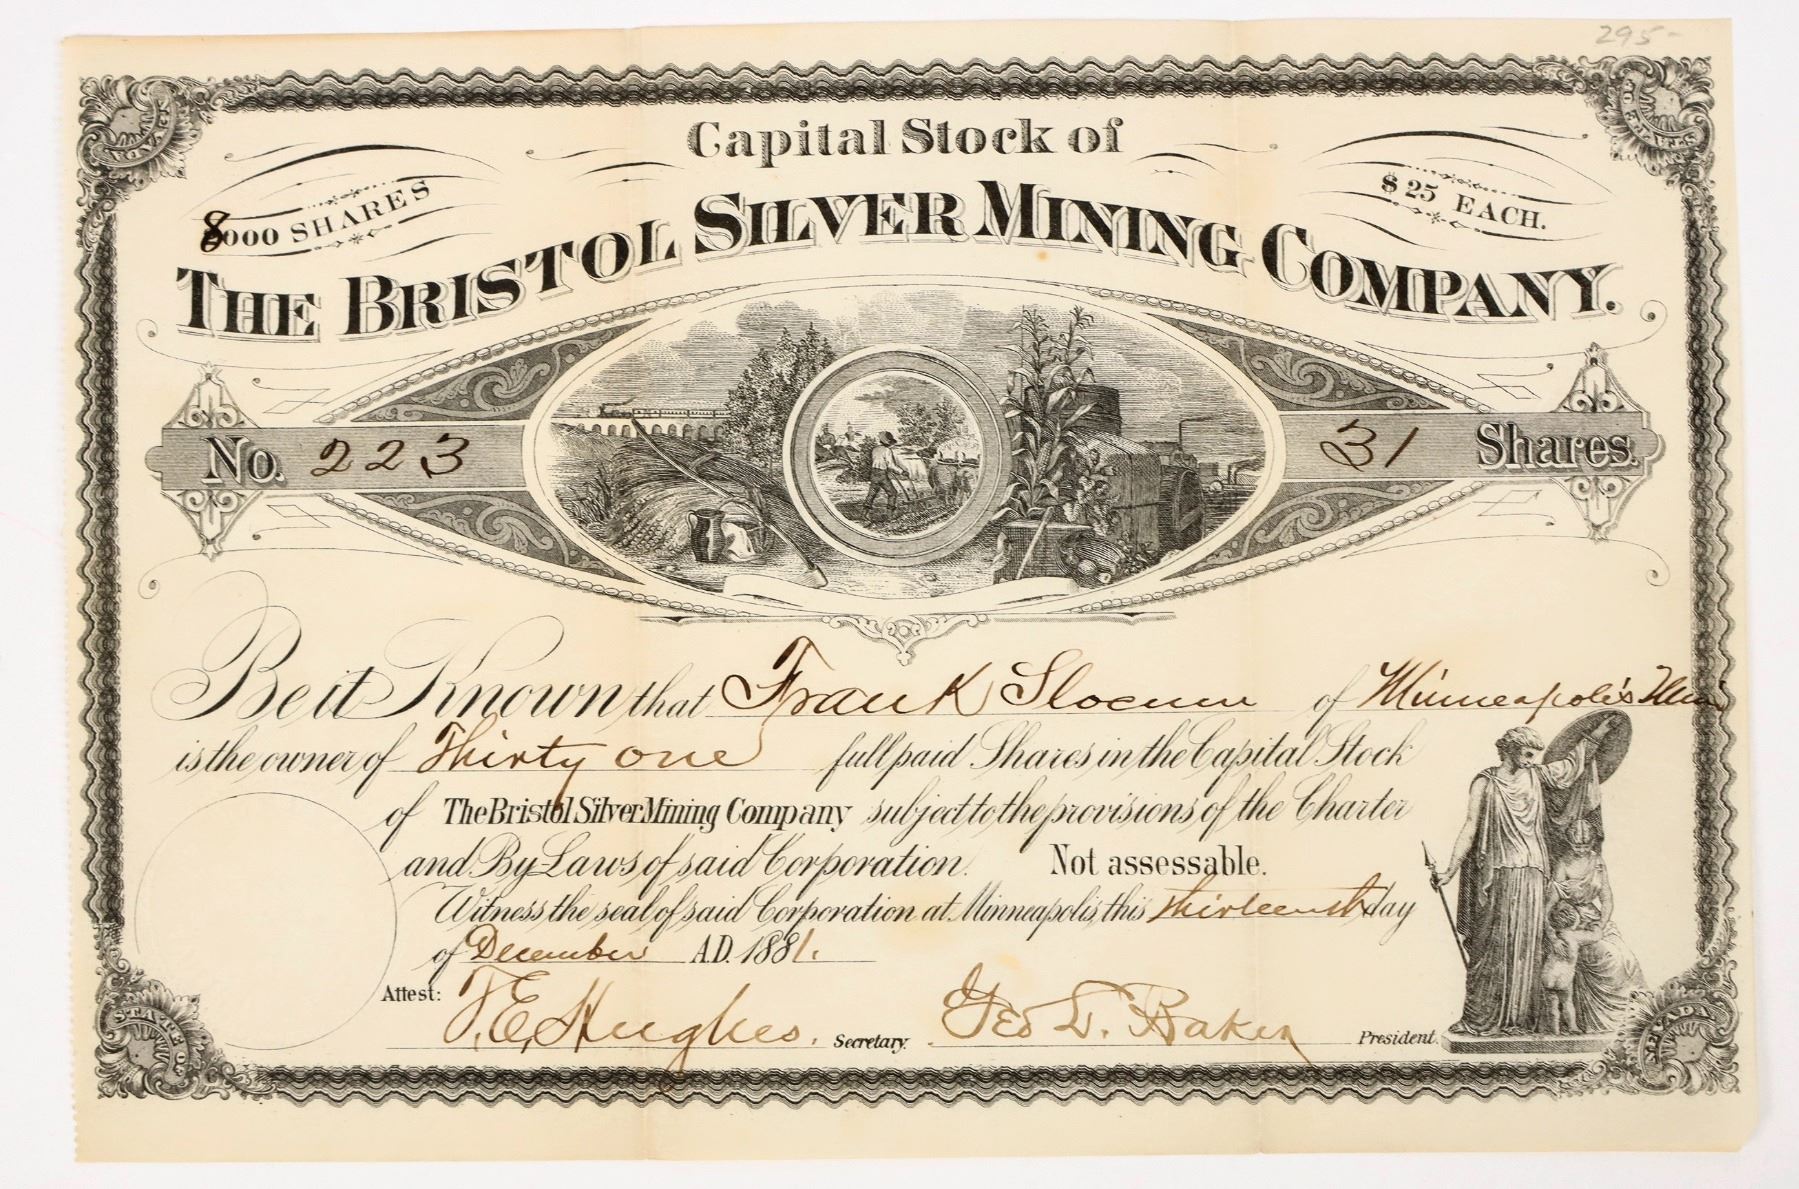 295-
NEVADA
STATE OF
Capital Stock of
8000 SHARES
$25 EACH.
THE BRISTOL SILVER MINING COMPANY.
No. 223
31 Shares.
Be it Known that Frank Slocum of Minneapolis Minn
is the owner of Thirty one full paid Shares in the Capital Stock
of The Bristol Silver Mining Company subject to the provisions of the Charter
and By-Laws of said Corporation. Not assessable.
Witness the seal of said Corporation at Minneapolis, this thirteenth day
of December A.D. 1881.
Attest: T. E. Hughes. Secretary. Geo L. Baker President.
STATE OF
NEVADA